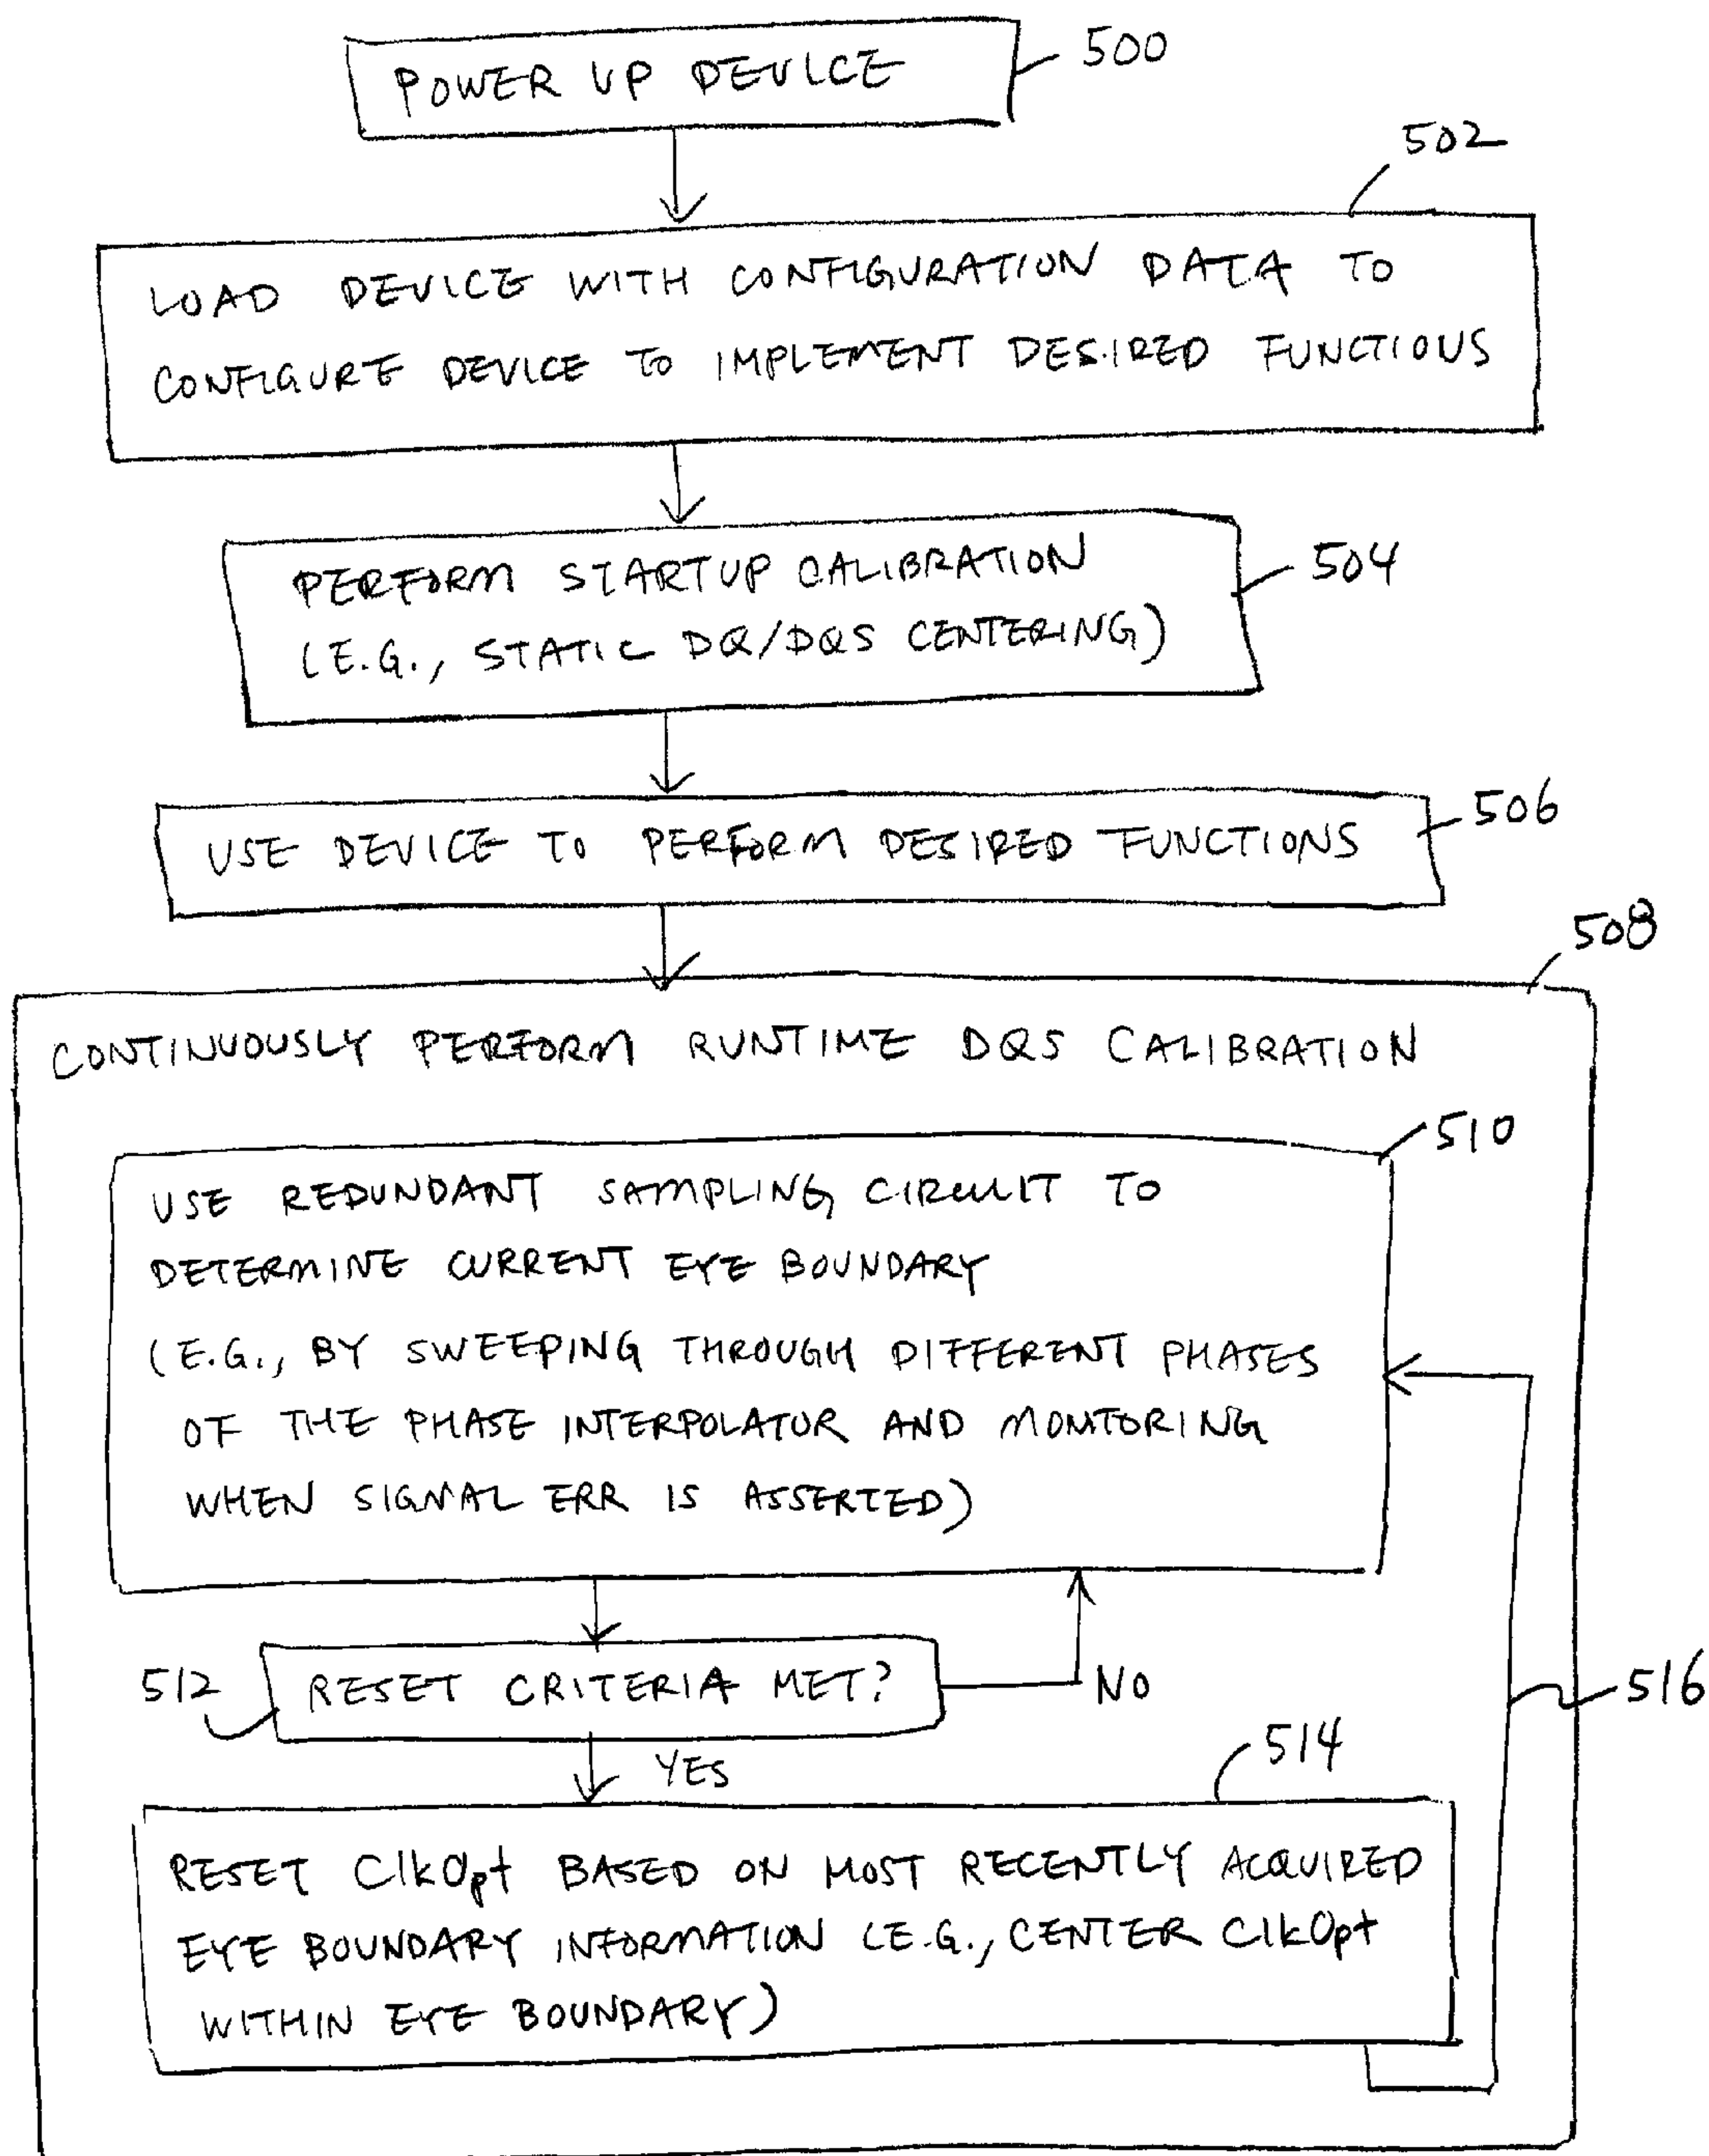 POWER UP DEVICE
500
502
LOAD DEVICE WITH CONFIGURATION DATA TO
CONFIGURE DEVICE TO IMPLEMENT DESIRED FUNCTIONS
PERFORM STARTUP CALIBRATION
(E.G., STATIC DQ/DQS CENTERING)
504
USE DEVICE TO PERFORM DESIRED FUNCTIONS
506
508
CONTINUOUSLY PERFORM RUNTIME DQS CALIBRATION
510
USE REDUNDANT SAMPLING CIRCUIT TO
DETERMINE CURRENT EYE BOUNDARY
(E.G., BY SWEEPING THROUGH DIFFERENT PHASES
OF THE PHASE INTERPOLATOR AND MONITORING
WHEN SIGNAL ERR IS ASSERTED)
512
RESET CRITERIA MET?
NO
516
YES
514
RESET ClkOpt BASED ON MOST RECENTLY ACQUIRED
EYE BOUNDARY INFORMATION (E.G., CENTER ClkOpt
WITHIN EYE BOUNDARY)